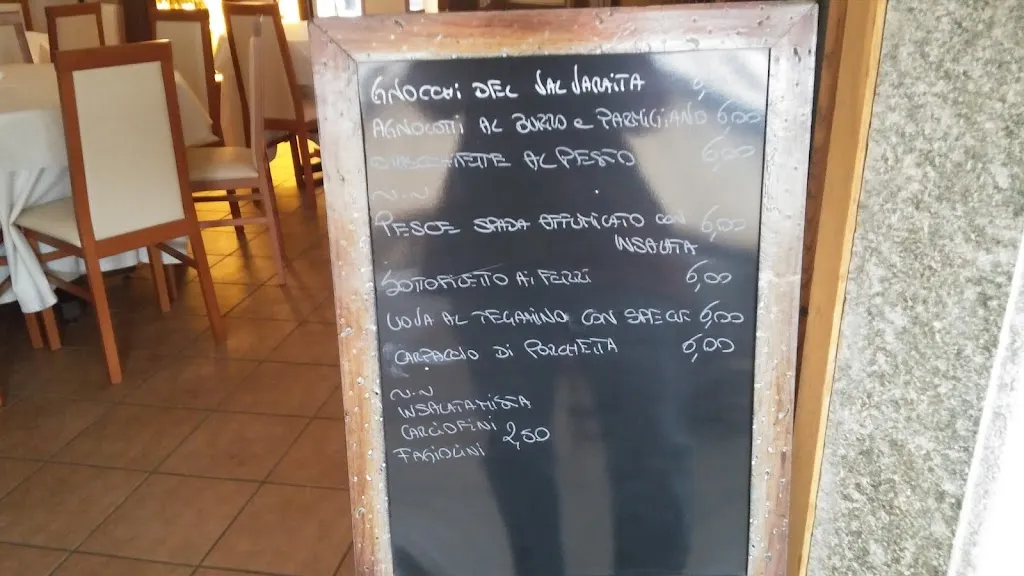 GNOCCHI DEL VAL VARAITA 6,
AGNOLOTTI AL BURRO e PARMIGIANO 6,00
ORECCHIETTE AL PESTO 6,00
~.~
PESCE SPADA AFFUMICATO CON 6,00
INSALATA
SOTTOFILETTO AI FERRI 6,00
UOVA AL TEGAMINO CON SPECK 6,00
CARPACCIO DI PORCHETTA 6,00
~.~
INSALATA MISTA
CARCIOFINI 2,50
FAGIOLINI